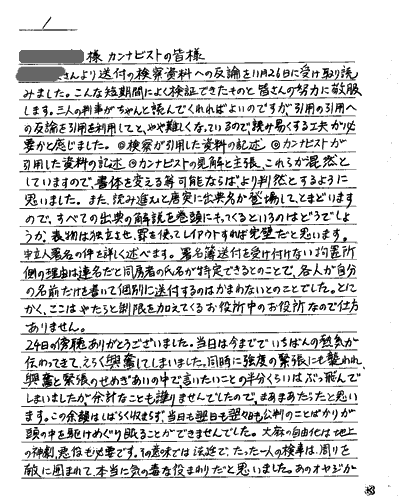 1
様 カンナビストの皆様
さんより送付の検察資料への反論を11月26日に受け取り読
みました。こんな短期間によく検証できたものと皆さんの努力に敬服
します。三人の判事がちゃんと読んでくれればよいのですが、引用の引用へ
の反論を引用を利用してと、やや難しくなっているので読み易くする工夫が必
要かと感じました。①検察が引用した資料の記述 ②カンナビストが
引用した資料の記述 ③カンナビストの見解と主張、これらが混然と
していますので、書体を変える等可能ならばより判然とするように
思いました。また、読み進むと唐突に出典名が登場して、とまどいます
ので、すべての出典の解説を巻頭にもってくるというのはどうでしょ
うか。表物は独立させ、罫を使ってレイアウトすれば完璧だと思います。
申立人署名の件を詳しく述べます。署名簿送付を受け付けない拘置所
側の理由は連名だと同房者の氏名が特定できるとのことで、各人が自分
の名前だけを書いて個別に送付するのはかまわないとのことでした。とに
かく、ここはやたらと制限を加えてくるお役所中のお役所なので仕方
ありません。
24日の傍聴ありがとうございました。当日は今まででいちばんの熱気が
伝わってきて、えらく興奮してしまいました。同時に強度の緊張にも襲われ、
興奮と緊張のせめぎあいの中で言いたいことの半分くらいはぶっ飛んで
しまいましたが余計なことも喋りませんでしたので、まあまあだったと思い
ます。この余韻はしばらく収まらず、当日も翌日も翌々日も公判のことばかりが
頭の中を駆けめぐり眠ることができませんでした。大麻の自由化は地上
の神劇、悪役も必要です。その意味では法廷で、たった一人の検事は、周りを
敵に囲まれて、本当に気の毒な役まわりだと思いました。あのオヤジが